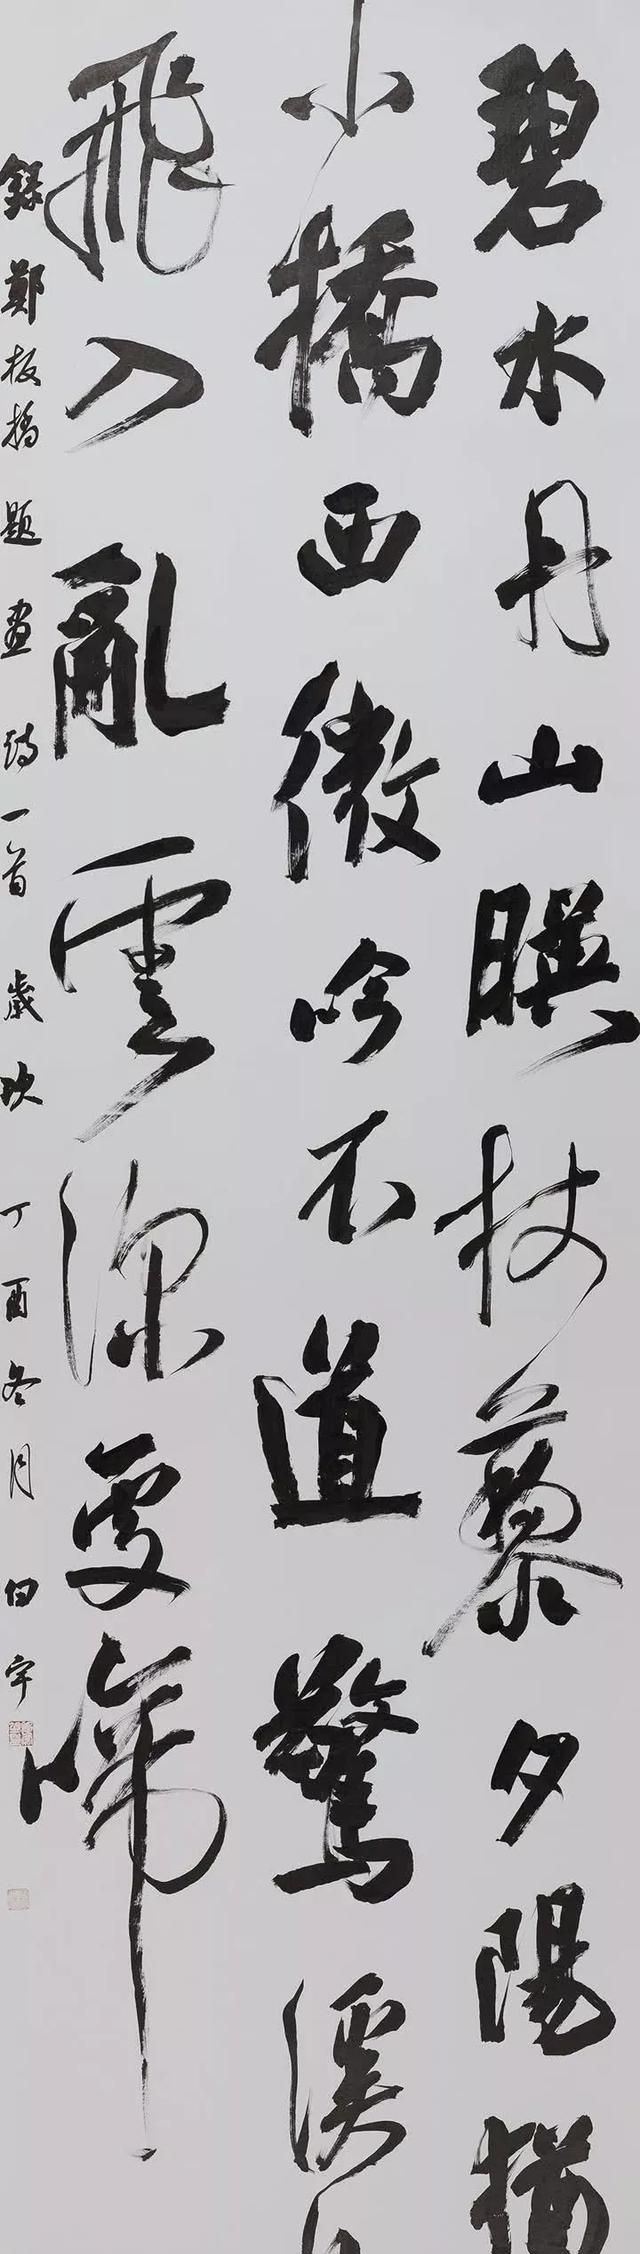 碧水丹山暎杖藜夕陽猶
小橋西微吟不道驚溪
飛入亂雲深處啼
錄鄭板橋題畫詩一首歲次丁酉冬月伯宇